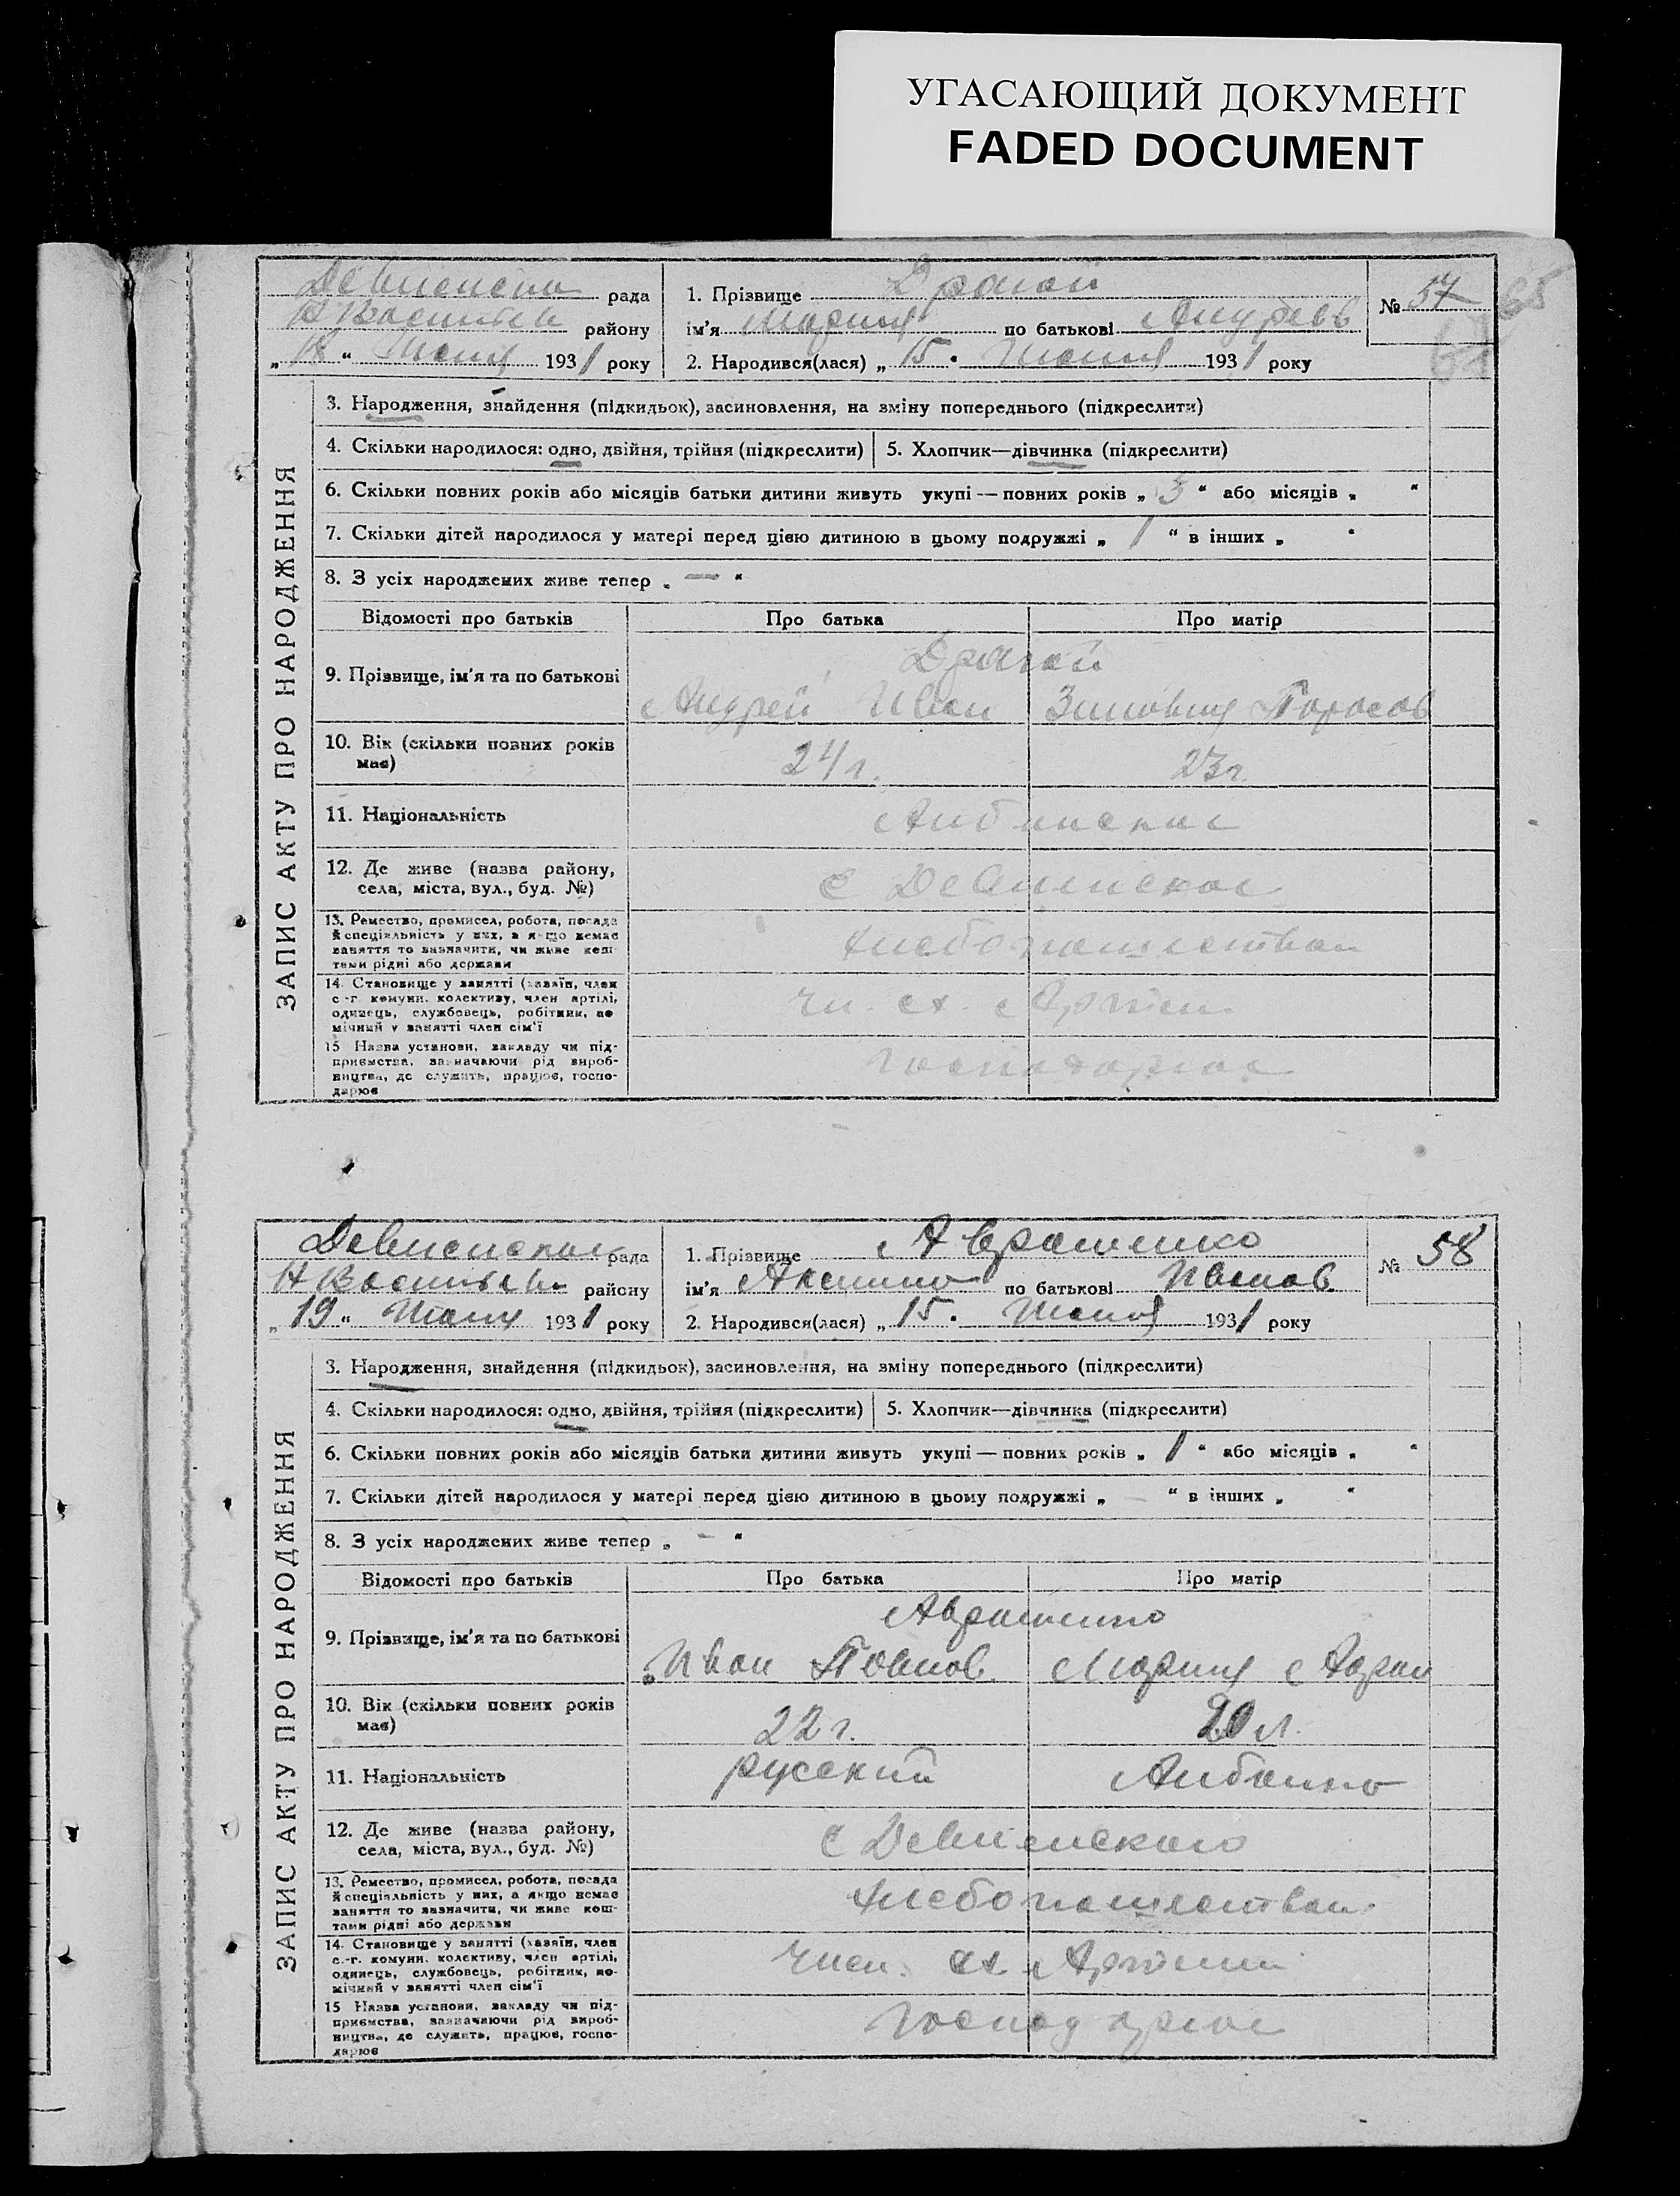 УГАСАЮЩИЙ ДОКУМЕНТ
FADED DOCUMENT
рада
району
1931 року
1. Прізвище Драгой
ім'я Мария по батькові Андреев
2. Народився(лася) „ 15 . 1931 року
№ 57
65
ЗАПИС АКТУ ПРО НАРОДЖЕННЯ
3. Народження, знайдення (підкидьок), засиновлення, на зміну попереднього (підкреслити)
4. Скільки народилося: одно, двійня, трійня (підкреслити)
5. Хлопчик—дівчинка (підкреслити)
6. Скільки повних років або місяців батьки дитини живуть укупі — повних років „ 3 " або місяців „ "
7. Скільки дітей народилося у матері перед цією дитиною в цьому подружжі „ 1 " в інших „ "
8. З усіх народжених живе тепер „ — "
Відомості про батьків
Про батька
Про матір
9. Прізвище, ім'я та по батькові
Драгой
Андрей Иван
Зиновия Тарасов
10. Вік (скільки повних років має)
24 г.
23 г.
11. Національність
12. Де живе (назва району, села, міста, вул., буд. №)
13. Ремество, промисел, робота, посада й спеціяльність у них, а якщо немає заняття то зазначити, чи живе коштами рідні або держави
хлебопашеством
14. Становище у занятті (хазяїн, член с.-г. комуни, колективу, член артілі, одинець, службовець, робітник, помічний у занятті член сім'ї
чл. сх. Артели
15 Назва установи, закладу чи підприємства, зазначаючи рід виробництва, де служить, працює, господарює
рада
району
„ 19 " 1931 року
1. Прізвище Авраменко
ім'я по батькові Иванов.
2. Народився(лася) „ 15. 1931 року
№ 58
ЗАПИС АКТУ ПРО НАРОДЖЕННЯ
3. Народження, знайдення (підкидьок), засиновлення, на зміну попереднього (підкреслити)
4. Скільки народилося: одно, двійня, трійня (підкреслити)
5. Хлопчик—дівчинка (підкреслити)
6. Скільки повних років або місяців батьки дитини живуть укупі — повних років „ 1 " або місяців „ "
7. Скільки дітей народилося у матері перед цією дитиною в цьому подружжі „ — " в інших „ "
8. З усіх народжених живе тепер „ - "
Відомості про батьків
Про батька
Про матір
9. Прізвище, ім'я та по батькові
Авраменко
Иван
Мария
10. Вік (скільки повних років має)
22 г.
20 л.
11. Національність
русский
Албанка
12. Де живе (назва району, села, міста, вул., буд. №)
13. Ремество, промисел, робота, посада й спеціяльність у них, а якщо немає заняття то зазначити, чи живе коштами рідні або держави
хлебопашеством
14. Становище у занятті (хазяїн, член с.-г. комуни, колективу, член артілі, одинець, службовець, робітник, помічний у занятті член сім'ї
член. сх. Артели
15 Назва установи, закладу чи підприємства, зазначаючи рід виробництва, де служить, працює, господарює